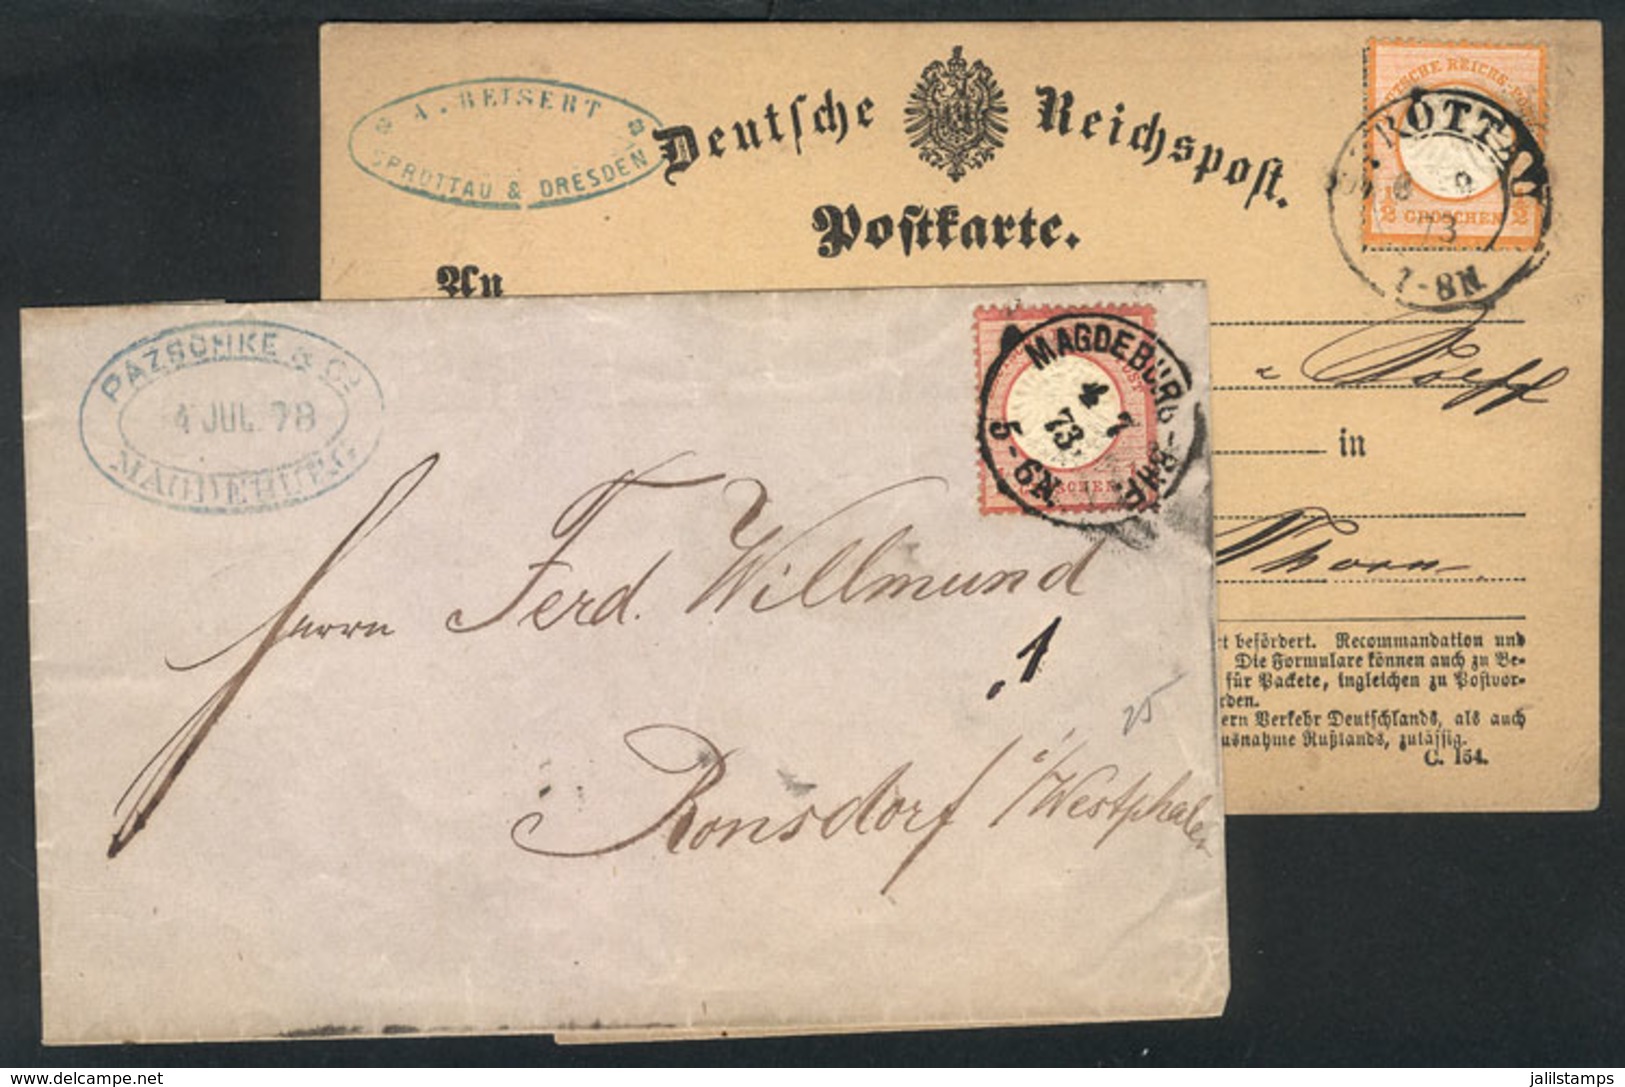 A. REISERT
SPROTTAU & DRESDEN
Deutsche Reichspost.
Postkarte.
An
TSCHE REICHS-POST
SPROTTAU
73
7-8N
1/2 GROSCHEN 1/2
in
Thorn
t befördert. Recommandation und
Die Formulare können auch zu Be-
für Packete, ingleichen zu Postvor-
rden.
ern Verkehr Deutschlands, als auch
usnahme Rußlands, zulässig.
C. 154.
PAZSCHKE & Co
4 JUL. 73
MAGDEBURG
MAGDEBURG-BHF.
4 7
73.
5-6N.
Herrn Ferd. Willmund
1
25
Ronsdorf
i/Westphalen
jalilstamps